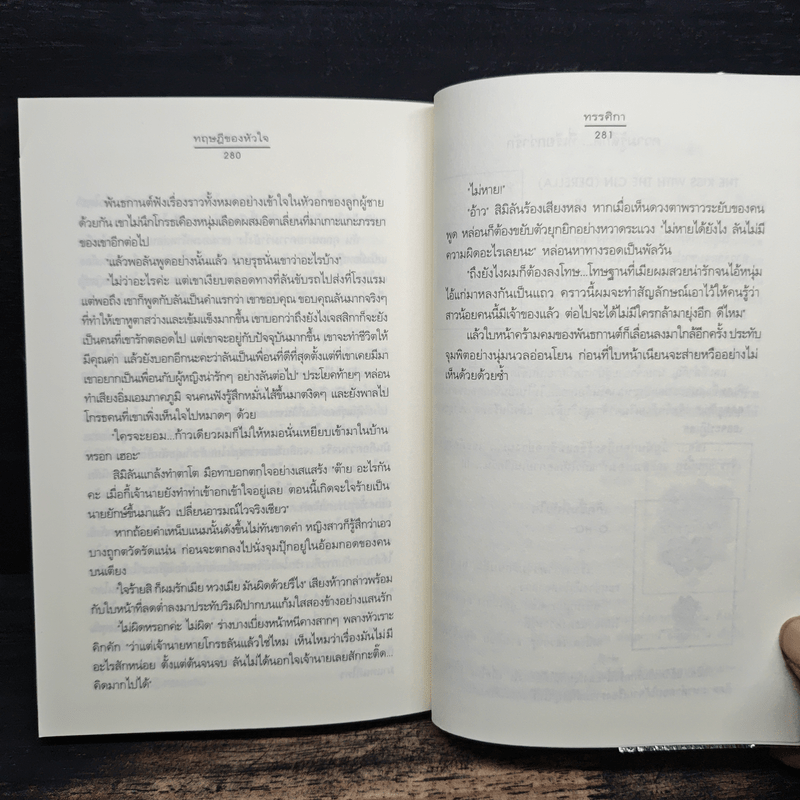 ทฤษฎีของหัวใจ
280
พันธกานต์ฟังเรื่องราวทั้งหมดอย่างเข้าใจในหัวอกของลูกผู้ชาย
ด้วยกัน เขาไม่นึกโกรธเคืองหนุ่มเลือดผสมอิตาเลี่ยนที่มาเกาะแกะภรรยา
ของเขาอีกต่อไป
'แล้วพอลันพูดอย่างนั้นแล้ว นายรุชนั่นเขาว่าอะไรบ้าง'
'ไม่ว่าอะไรค่ะ แต่เขาเงียบตลอดทางที่ลันขับรถไปส่งที่โรงแรม
แต่พอถึง เขาก็พูดกับลันเป็นคำแรกว่า เขาขอบคุณ ขอบคุณลันมากจริงๆ
ที่ทำให้เขาหูตาสว่างและเข้มแข็งมากขึ้น เขาบอกว่าถึงยังไงเจสสิกาก็จะยัง
เป็นคนที่เขารักตลอดไป แต่เขาจะอยู่กับปัจจุบันมากขึ้น เขาจะทำชีวิตให้
มีคุณค่า แล้วยังบอกอีกนะคะว่าลันเป็นเพื่อนที่ดีที่สุดตั้งแต่ที่เขาเคยมีมา
เขาอยากเป็นเพื่อนกับผู้หญิงน่ารักๆ อย่างลันต่อไป' ประโยคท้ายๆ หล่อน
ทำเสียงอิ่มเอมภาคภูมิ จนคนฟังรู้สึกหมั่นไส้ขึ้นมาตงิดๆ และยังพาลไป
โกรธคนที่เขาเพิ่งเห็นใจไปหมาดๆ ด้วย
'ใครจะยอม...ก้าวเดียวผมก็ไม่ให้หมอนั่นเหยียบเข้ามาในบ้าน
หรอก เฮอะ'
สิมิลันแกล้งทำตาโต มือทาบอกตกใจอย่างเสแสร้ง 'ต๊าย อะไรกัน
คะ เมื่อกี้เจ้านายยังทำท่าเข้าอกเข้าใจอยู่เลย ตอนนี้เกิดจะใจร้ายเป็น
นายยักษ์ขึ้นมาแล้ว เปลี่ยนอารมณ์ไวจริงเชียว'
หากถ้อยคำเหน็บแนมนั้นดังขึ้นไม่ทันขาดคำ หญิงสาวก็รู้สึกว่าเอว
บางถูกตวัดรัดแน่น ก่อนจะตกลงไปนั่งจุมปุ๊กอยู่ในอ้อมกอดของคน
บนเตียง
'ใจร้ายสิ ก็ผมรักเมีย หวงเมีย มันผิดด้วยรึไง' เสียงห้าวกล่าวพร้อม
กับใบหน้าที่ลดต่ำลงมาประทับริมฝีปากบนแก้มใสสองข้างอย่างแสนรัก
'ไม่ผิดหรอกค่ะ ไม่ผิด' ร่างบางเบี่ยงหน้าหนีคางสากๆ พลางหัวเราะ
คิกคัก 'ว่าแต่เจ้านายหายโกรธลันแล้วใช่ไหม เห็นไหมว่าเรื่องมันไม่มี
อะไรสักหน่อย ตั้งแต่ต้นจนจบ ลันไม่ได้นอกใจเจ้านายเลยสักกะติ๊ด...
คิดมากไปได้'
ทรรศิกา
281
'ไม่หาย!'
'อ้าว' สิมิลันร้องเสียงหลง หากเมื่อเห็นดวงตาพราวระยับของคน
พูด หล่อนก็ต้องขยับตัวยุกยิกอย่างหวาดระแวง 'ไม่หายได้ยังไง ลันไม่มี
ความผิดอะไรเลยนะ' หล่อนหาทางรอดเป็นพัลวัน
'ถึงยังไงผมก็ต้องลงโทษ...โทษฐานที่เมียผมสวยน่ารักจนไอ้หนุ่ม
ไอ้แก่มาหลงกันเป็นแถว คราวนี้ผมจะทำสัญลักษณ์เอาไว้ให้คนรู้ว่า
สาวน้อยคนนี้มีเจ้าของแล้ว ต่อไปจะได้ไม่มีใครกล้ามายุ่งอีก ดีไหม'
แล้วใบหน้าคร้ามคมของพันธกานต์ก็เลื่อนลงมาใกล้อีกครั้ง ประทับ
จุมพิตอย่างนุ่มนวลอ่อนโยน ก่อนที่ใบหน้าเนียนจะส่ายหวืออย่างไม่
เห็นด้วยด้วยซ้ำ